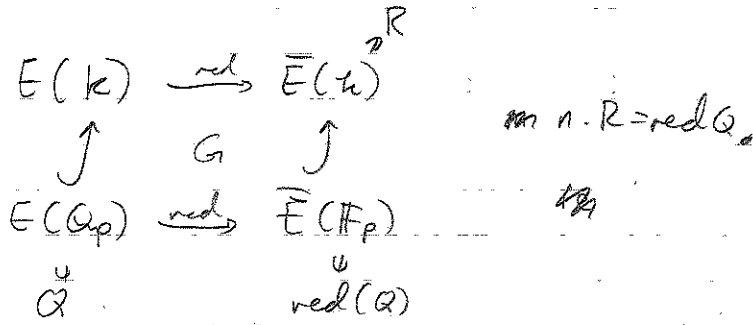 R
E(k) red Ē(k)
n·R = red Q
G
E(Q_p) red Ē(F_p)
Q red(Q)